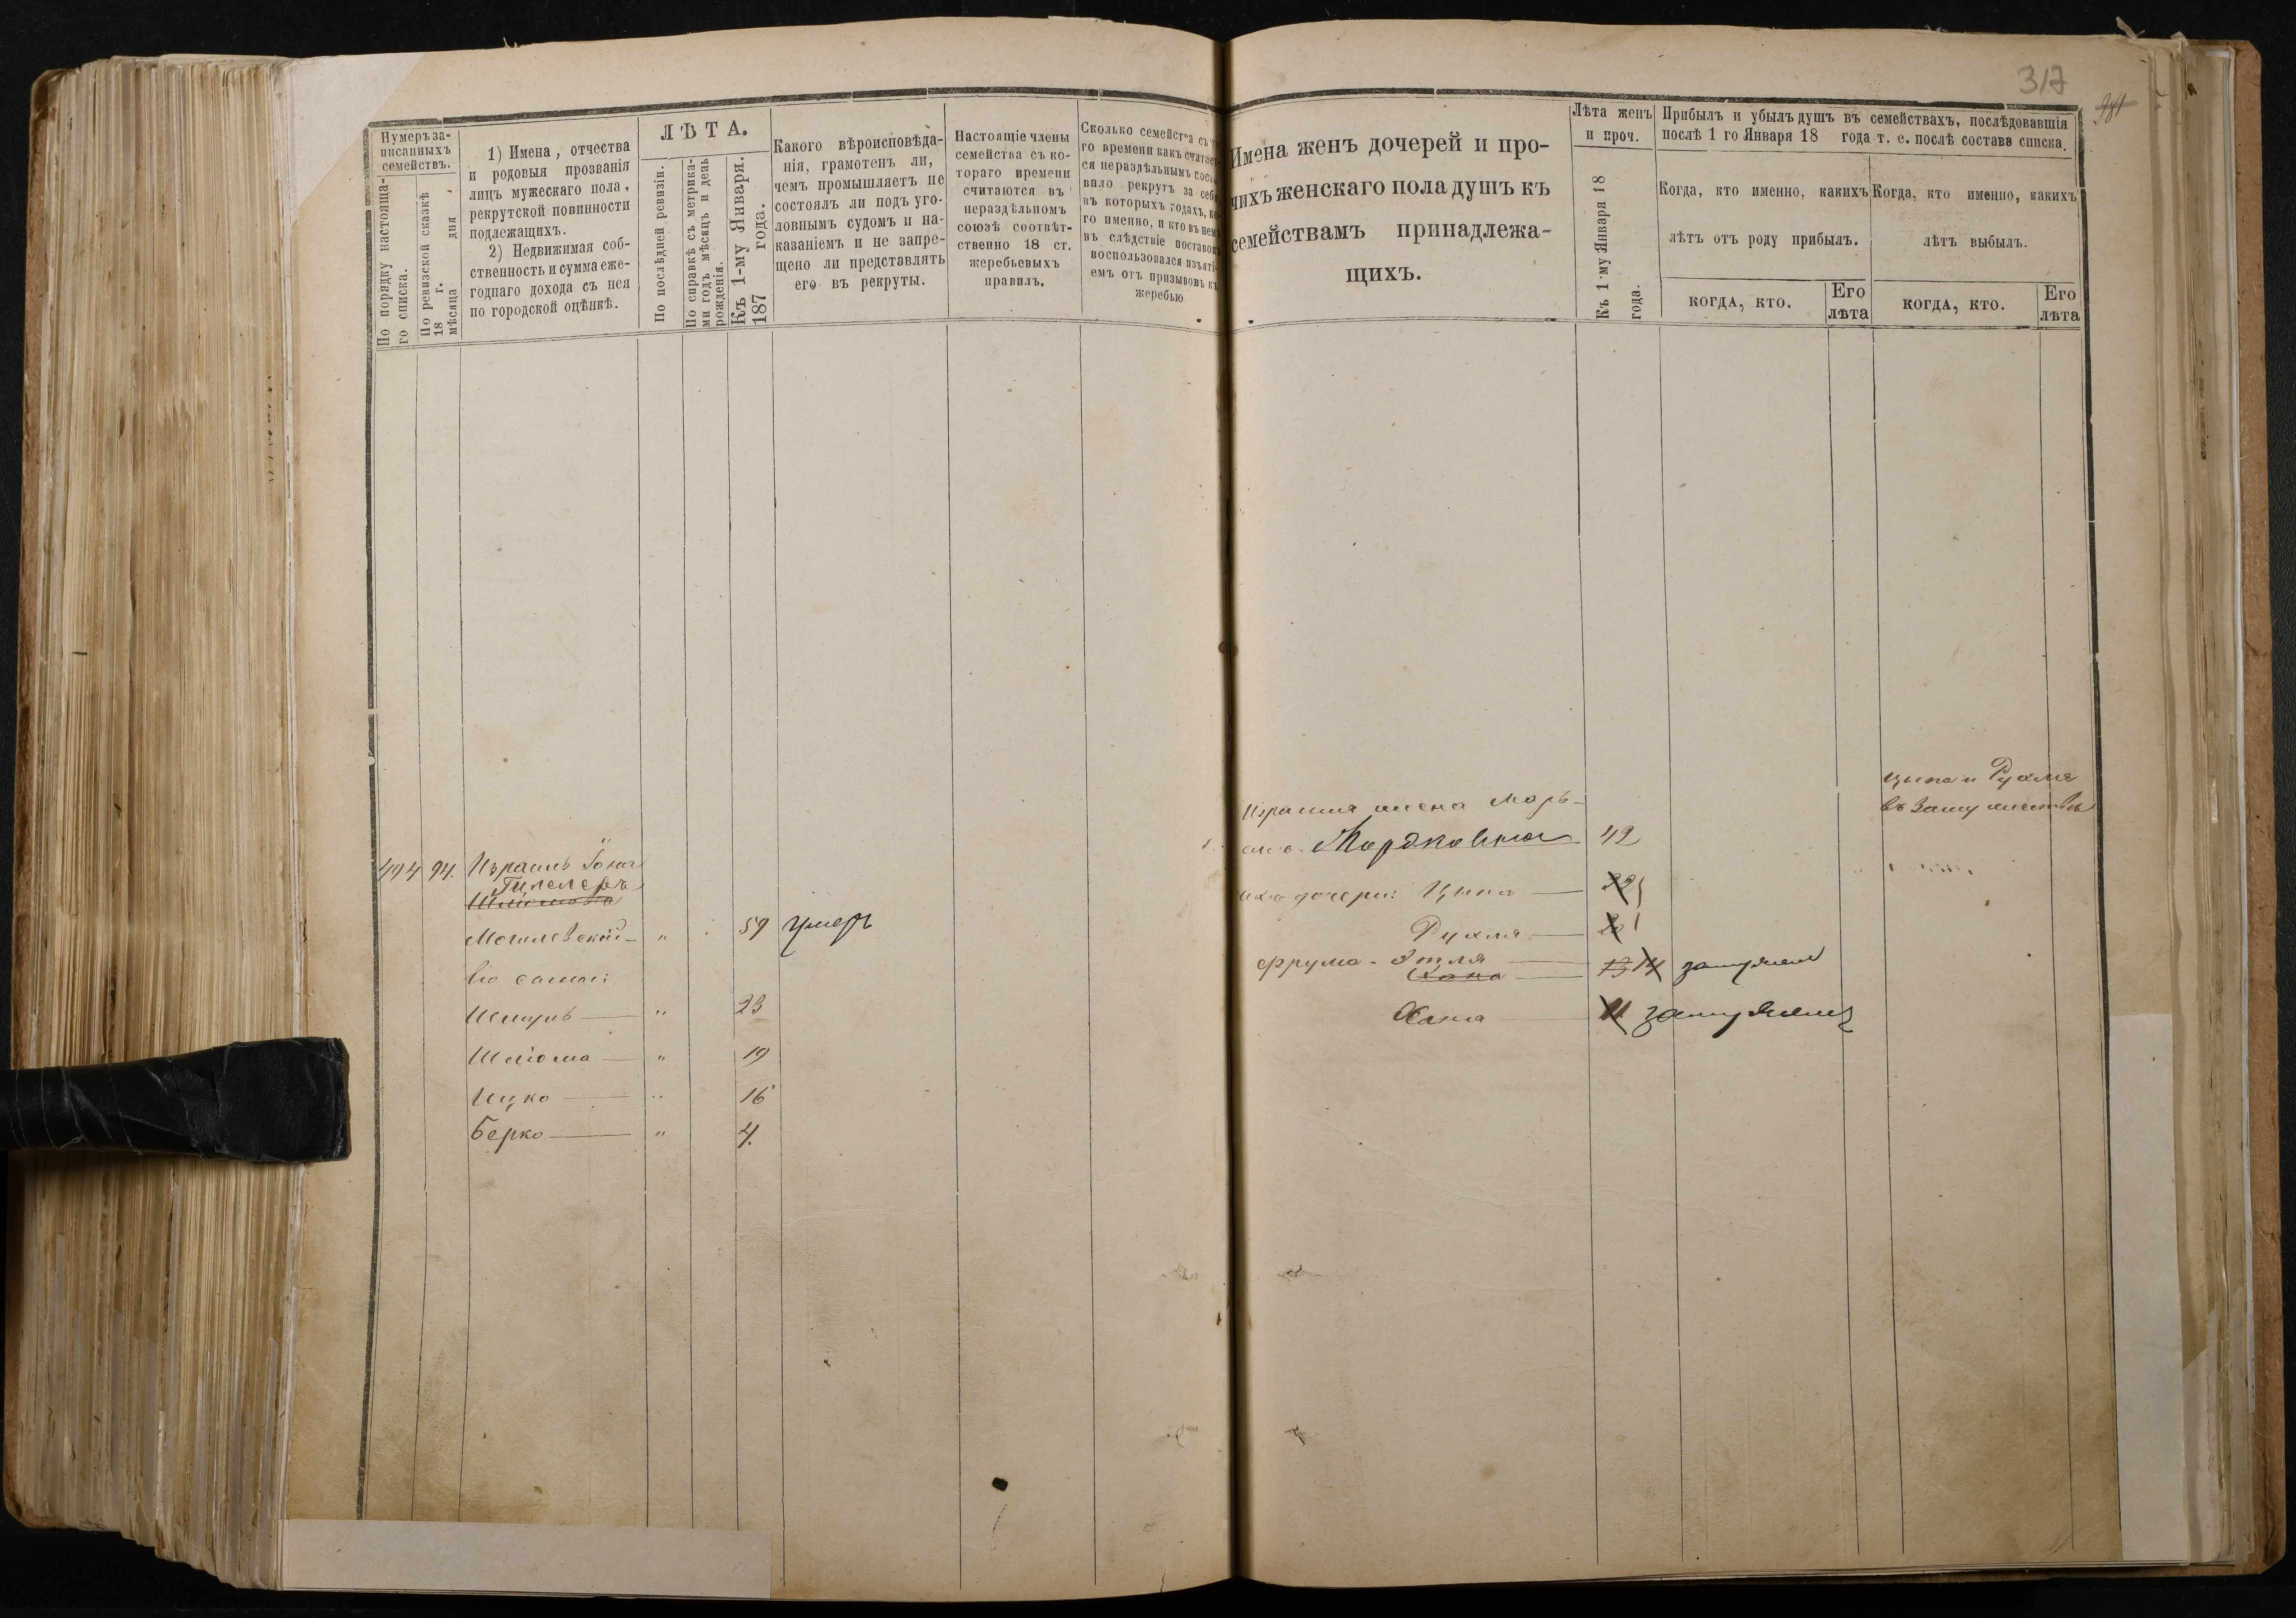 317
Нумеръ за-
писанныхъ
семействъ.
По порядку настояща-
го списка.
По ревизской сказкѣ
18 г.
мѣсяца дня
1) Имена, отчества
и родовыя прозванія
лицъ мужескаго пола,
рекрутской повинности
подлежащихъ.
2) Недвижимая соб-
ственность и сумма еже-
годнаго дохода съ нея
по городской оцѣнкѣ.
ЛѢТА.
По послѣдней ревизіи.
По справкѣ съ метрика-
ми годъ мѣсяцъ и день
рожденія.
Къ 1-му Января.
187 года.
Какого вѣроисповѣда-
нія, грамотенъ ли,
чемъ промышляетъ не
состоялъ ли подъ уго-
ловнымъ судомъ и на-
казаніемъ и не запре-
щено ли представлять
его въ рекруты.
Настоящіе члены
семейства съ ко-
тораго времени
считаются въ
нераздѣльномъ
союзѣ соотвѣт-
ственно 18 ст.
жеребьевыхъ
правилъ.
Сколько семейства съ
го времени какъ считает
ся нераздѣльнымъ
вило рекрутъ за себя
въ которыхъ годахъ, ко
го именно, и кто въ нем
въ слѣдствіе поставок
воспользовался изъяті
емъ отъ призывовъ къ
жеребью
Имена женъ дочерей и про-
чихъ женскаго пола душъ къ
семействамъ принадлежа-
щихъ.
Лѣта женъ
и проч.
Къ 1-му Января 18
года.
Прибылъ и убылъ душъ въ семействахъ, послѣдовавшія
послѣ 1 го Января 18 года т. е. послѣ состава списка.
Когда, кто именно, какихъ
лѣтъ отъ роду прибылъ.
КОГДА, КТО.
Его
лѣта
Когда, кто именно, какихъ
лѣтъ выбылъ.
КОГДА, КТО.
Его
лѣта
494 94. Израиль
Могилевскій — " 59 умеръ
Его сыновья:
" 23
Шлiома — " 19
Ицко — " 16
Берко — " 4.
Израиля жена Марь-
Мордковна 42
ихъ дочери: Ципа — 22
Рухля — 20
Фрума - Этля — 13 14 замужемъ
Хана
Хана — 11 замужемъ
Ципа и Рухля
въ замужествѣ